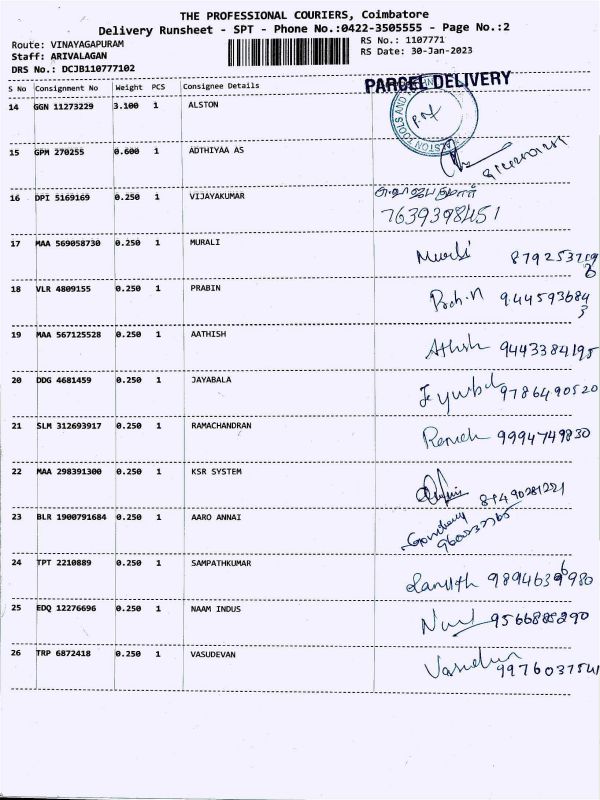 THE PROFESSIONAL COURIERS, Coimbatore
Delivery Runsheet - SPT - Phone No.:0422-3505555 - Page No.:2
Route: VINAYAGAPURAM
RS No.: 1107771
Staff: ARIVALAGAN
RS Date: 30-Jan-2023
DRS No.: DCJB110777102
PARCEL DELIVERY
S No Consignment No Weight PCS Consignee Details
14 GGN 11273229 3.100 1 ALSTON
ALSTON TOOLS AND
15 GPM 270255 0.600 1 ADTHIYAA AS
16 DPI 5169169 0.250 1 VIJAYAKUMAR
7639398451
17 MAA 569058730 0.250 1 MURALI Murali
18 VLR 4809155 0.250 1 PRABIN
19 MAA 567125528 0.250 1 AATHISH Athish 9443384195
20 DDG 4681459 0.250 1 JAYABALA 9786490520
21 SLM 312693917 0.250 1 RAMACHANDRAN 9994749830
22 MAA 298391300 0.250 1 KSR SYSTEM
23 BLR 1900791684 0.250 1 AARO ANNAI
24 TPT 2210889 0.250 1 SAMPATHKUMAR
25 EDQ 12276696 0.250 1 NAAM INDUS
26 TRP 6872418 0.250 1 VASUDEVAN 9976037541